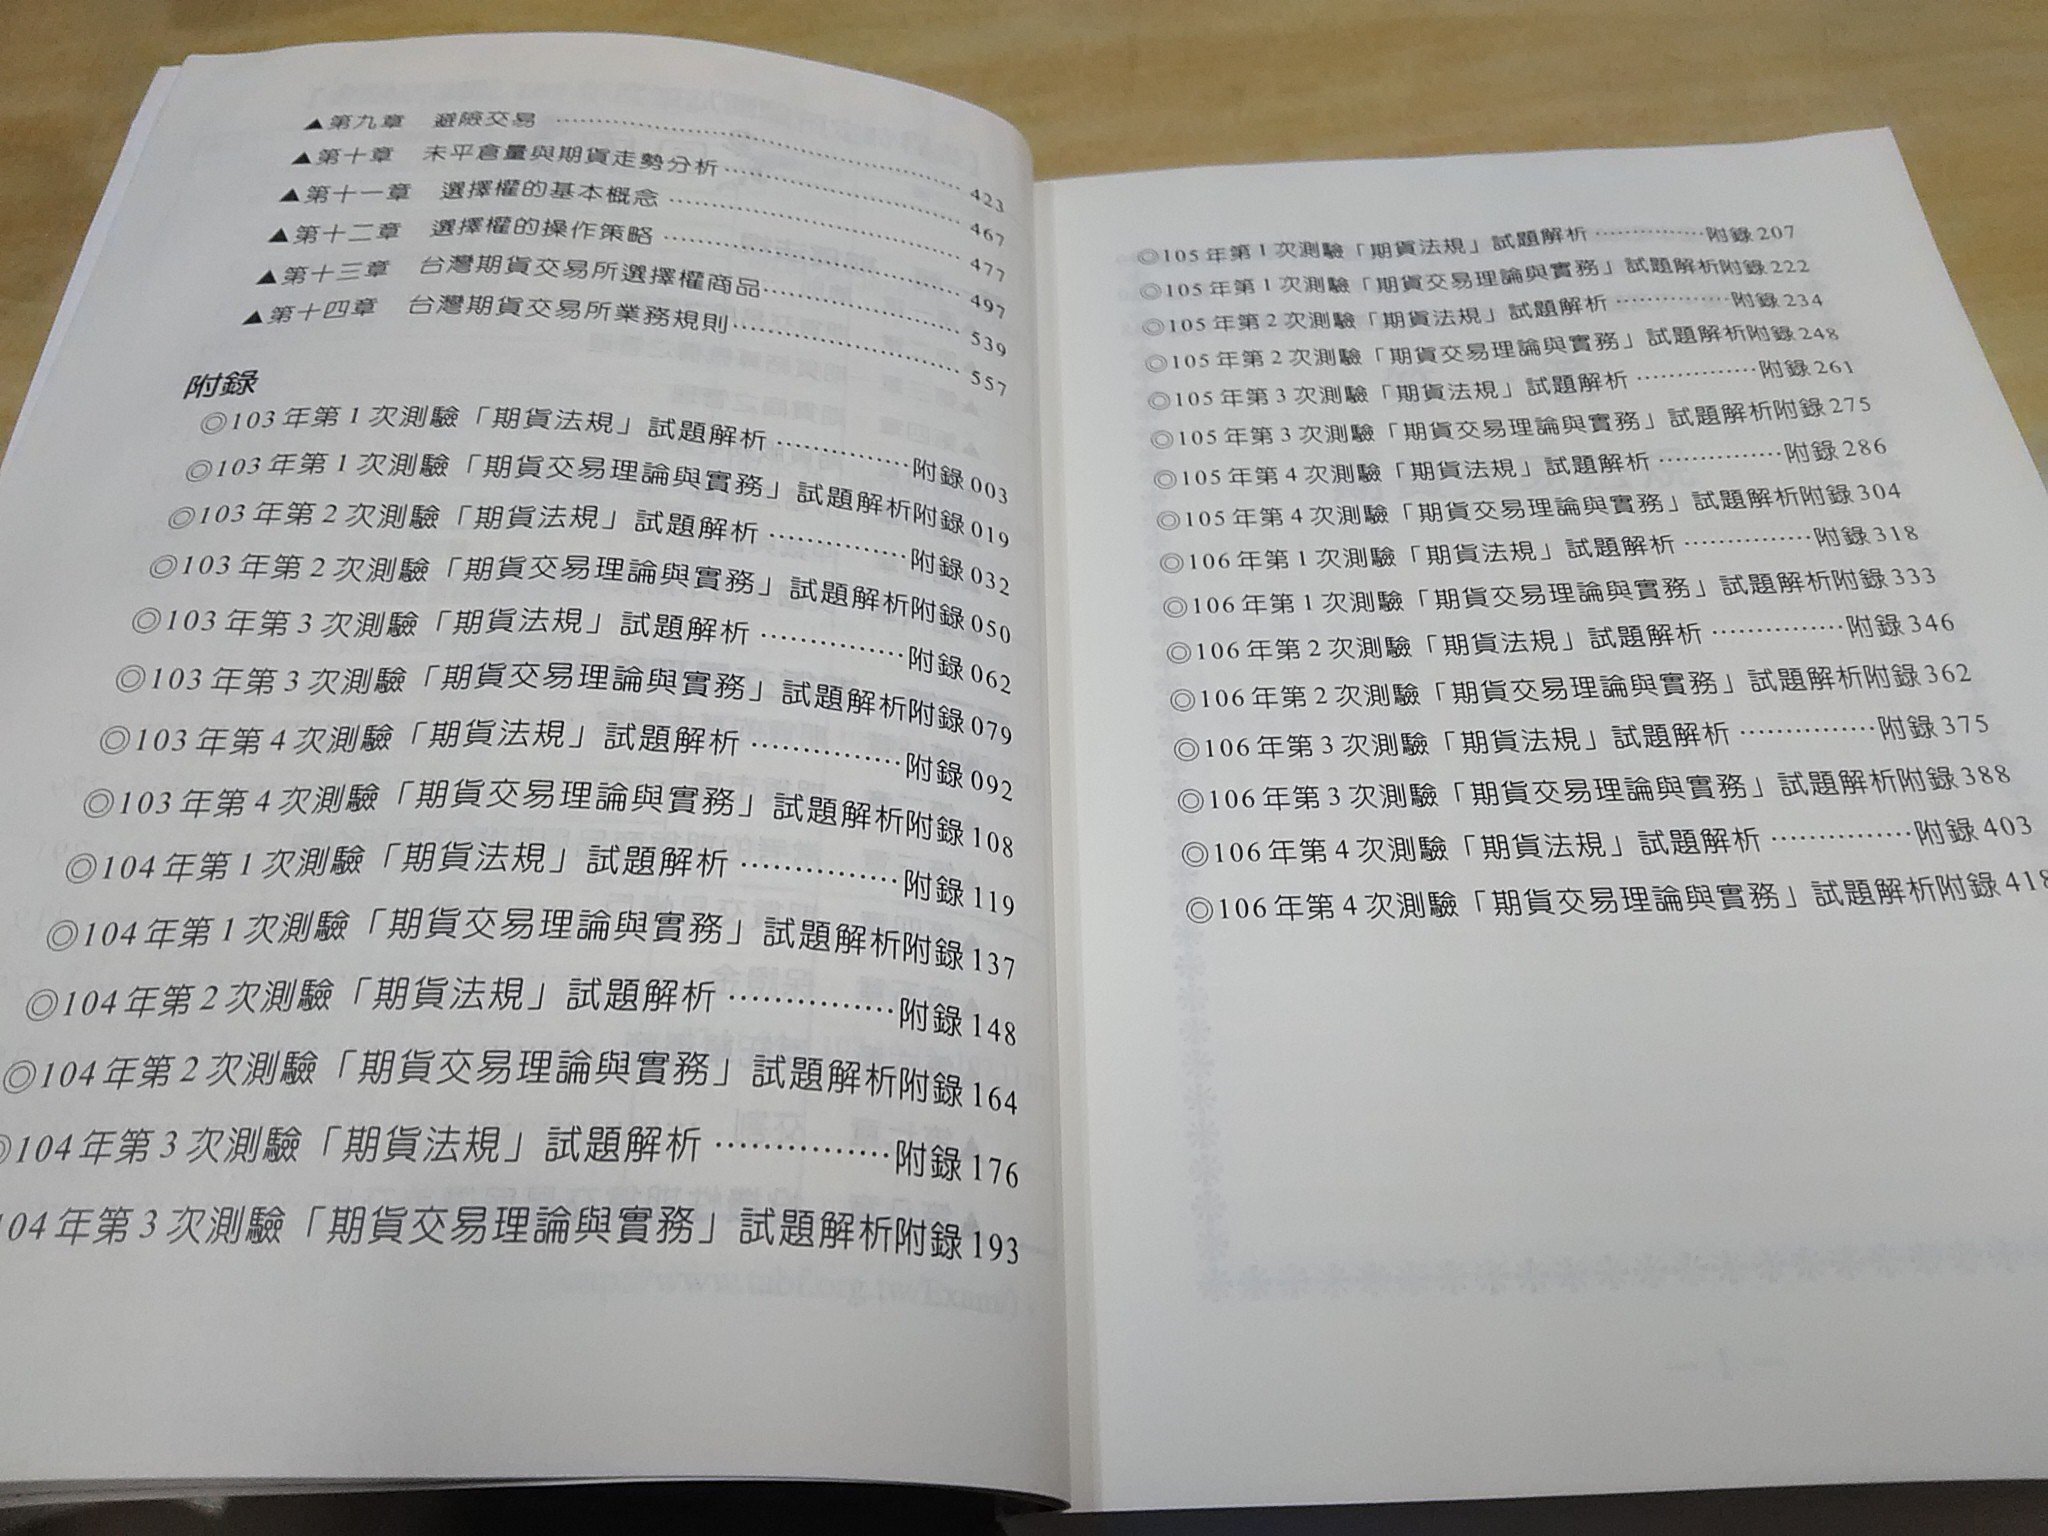 ▲第九章 避險交易 …… 423
▲第十章 未平倉量與期貨走勢分析 …… 467
▲第十一章 選擇權的基本概念 …… 477
▲第十二章 選擇權的操作策略 …… 497
▲第十三章 台灣期貨交易所選擇權商品 …… 539
▲第十四章 台灣期貨交易所業務規則 …… 557
附錄
◎103年第1次測驗「期貨法規」試題解析 …… 附錄003
◎103年第1次測驗「期貨交易理論與實務」試題解析附錄019
◎103年第2次測驗「期貨法規」試題解析 …… 附錄032
◎103年第2次測驗「期貨交易理論與實務」試題解析附錄050
◎103年第3次測驗「期貨法規」試題解析 …… 附錄062
◎103年第3次測驗「期貨交易理論與實務」試題解析附錄079
◎103年第4次測驗「期貨法規」試題解析 …… 附錄092
◎103年第4次測驗「期貨交易理論與實務」試題解析附錄108
◎104年第1次測驗「期貨法規」試題解析 …… 附錄119
◎104年第1次測驗「期貨交易理論與實務」試題解析附錄137
◎104年第2次測驗「期貨法規」試題解析 …… 附錄148
◎104年第2次測驗「期貨交易理論與實務」試題解析附錄164
◎104年第3次測驗「期貨法規」試題解析 …… 附錄176
104年第3次測驗「期貨交易理論與實務」試題解析附錄193
◎105年第1次測驗「期貨法規」試題解析 …… 附錄207
◎105年第1次測驗「期貨交易理論與實務」試題解析附錄222
◎105年第2次測驗「期貨法規」試題解析 …… 附錄234
◎105年第2次測驗「期貨交易理論與實務」試題解析附錄248
◎105年第3次測驗「期貨法規」試題解析 …… 附錄261
◎105年第3次測驗「期貨交易理論與實務」試題解析附錄275
◎105年第4次測驗「期貨法規」試題解析 …… 附錄286
◎105年第4次測驗「期貨交易理論與實務」試題解析附錄304
◎106年第1次測驗「期貨法規」試題解析 …… 附錄318
◎106年第1次測驗「期貨交易理論與實務」試題解析附錄333
◎106年第2次測驗「期貨法規」試題解析 …… 附錄346
◎106年第2次測驗「期貨交易理論與實務」試題解析附錄362
◎106年第3次測驗「期貨法規」試題解析 …… 附錄375
◎106年第3次測驗「期貨交易理論與實務」試題解析附錄388
◎106年第4次測驗「期貨法規」試題解析 …… 附錄403
◎106年第4次測驗「期貨交易理論與實務」試題解析附錄418